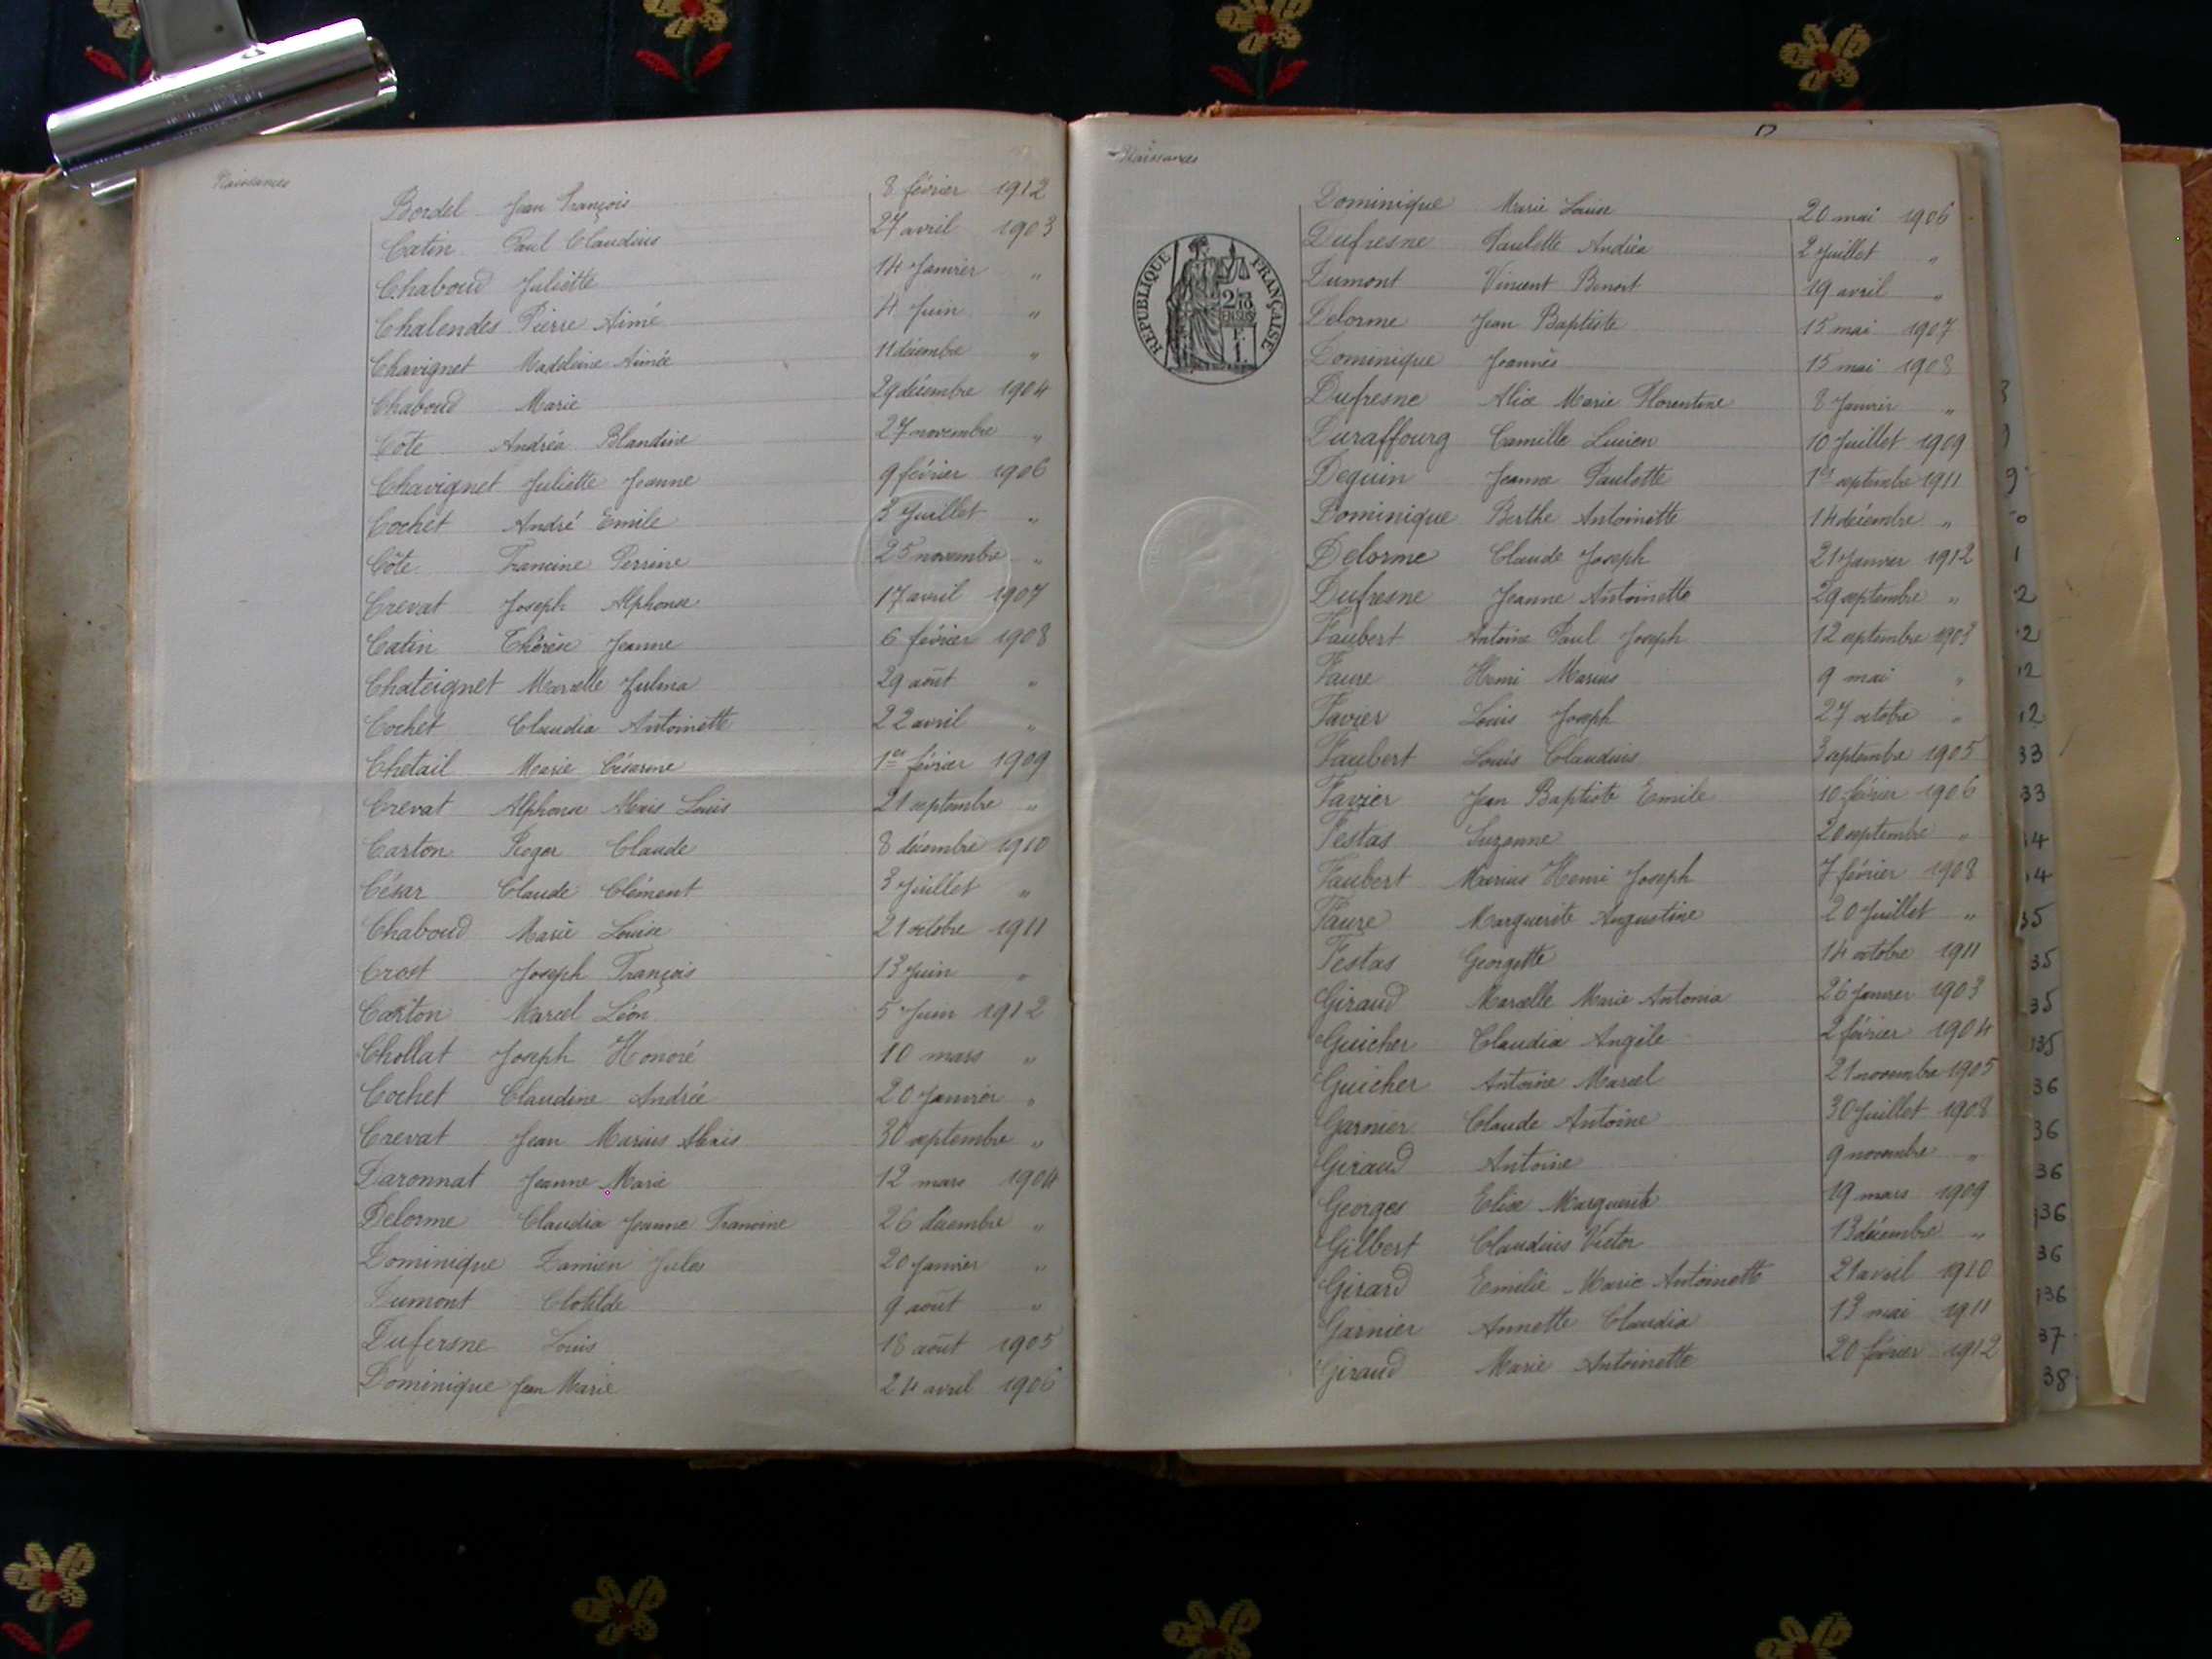 Naissances
Bordel Jean François 8 février 1912
Catin Paul Claudius 27 avril 1903
Chaboud Juliette 14 Janvier "
Chalendes Pierre Aimé 4 Juin "
Chavignet Madeleine Aimée 11 décembre "
Chaboud Marie 29 décembre 1904
Côte Andréa Blandine 27 novembre "
Chavignet Juliette Jeanne 9 février 1906
Cochet André Emile 3 Juillet "
Côte Francine Perrine 25 novembre "
Crevat Joseph Alphonse 17 avril 1907
Catin Thérèse Jeanne 6 février 1908
Chateignet Marcelle Zulma 29 août "
Cochet Claudia Antoinette 22 avril "
Chetail Marie Césarine 1er février 1909
Crevat Alphonse Alexis Louis 21 septembre "
Carton Roger Claude 8 décembre 1910
César Claude Clément 3 Juillet "
Chaboud Marie Louise 21 octobre 1911
Crost Joseph François 13 Juin "
Carton Marcel Léon 5 Juin 1912
Chollat Joseph Honoré 10 mars "
Cochet Claudine Andrée 20 Janvier "
Crevat Jean Marius Alexis 30 septembre "
Daronnat Jeanne Marie 12 mars 1904
Delorme Claudia Jeanne Francine 26 décembre "
Dominique Damien Jules 20 Janvier "
Dumont Clotilde 9 août "
Dufersne Louis 18 août 1905
Dominique Jean Marie 24 avril 1906
Naissances
RÉPUBLIQUE FRANÇAISE
Dominique Marie Louise 20 mai 1906
Dufresne Paulette Andréa 2 Juillet "
Dumont Vincent Benoit 19 avril "
Delorme Jean Baptiste 15 mai 1907
Dominique Joannès 15 mai 1908
Dufresne Alice Marie Florentine 8 Janvier "
Duraffourg Camille Lucien 10 Juillet 1909
Deguin Jeanne Paulette 1er septembre 1911
Dominique Berthe Antoinette 14 décembre "
Delorme Claude Joseph 21 Janvier 1912
Dufresne Jeanne Antoinette 29 septembre "
Faubert Antoine Paul Joseph 12 septembre 1903
Faure Henri Marius 9 mai "
Favier Louis Joseph 27 octobre "
Faubert Louis Claudius 3 septembre 1905
Favier Jean Baptiste Emile 10 février 1906
Festas Suzanne 20 septembre "
Faubert Marius Henri Joseph 7 février 1908
Faure Marguerite Augustine 20 Juillet "
Festas Georgette 14 octobre 1911
Giraud Marcelle Marie Antonia 26 Janvier 1903
Guicher Claudia Angèle 2 février 1904
Guicher Antoine Marcel 21 novembre 1905
Garnier Claude Antoine 30 Juillet 1908
Giraud Antoine 9 novembre "
Georges Elise Marguerite 19 mars 1909
Gilbert Claudius Victor 13 décembre "
Girard Emilie Marie Antoinette 21 avril 1910
Garnier Annette Claudia 13 mai 1911
Giraud Marie Antoinette 20 février 1912